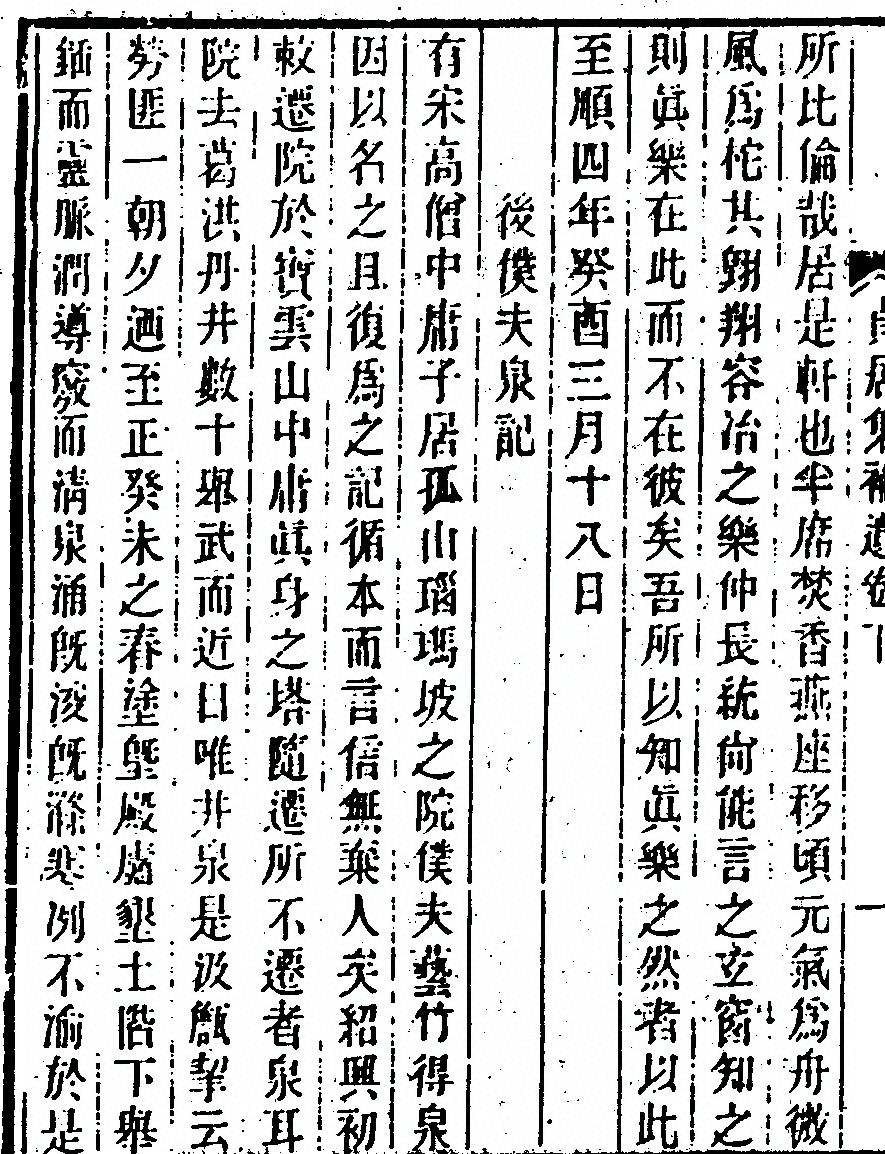 貞居集補遺卷下 一
所比倫哉居是軒也半席焚香燕座移頃元氣爲舟微
風爲柁其翱翔容冶之樂仲長統尙能言之玄窗知之
則眞樂在此而不在彼矣吾所以知眞樂之然者以此
至順四年癸酉三月十八日
後僕夫泉記
有宋高僧中庸子居孤山瑙瑪坡之院僕夫藝竹得泉
因以名之且復爲之記循本而言信無棄人矣紹興初
敕遷院於寶雲山中庸眞身之塔隨遷所不遷者泉耳
院去葛洪丹井數十舉武而近日唯井泉是汲甔挈云
勞匪一朝夕迺至正癸未之春塗塈殿廡墾土階下舉
鍤而靈脈潤導窾而清泉涌旣浚旣滌寒冽不渝於是